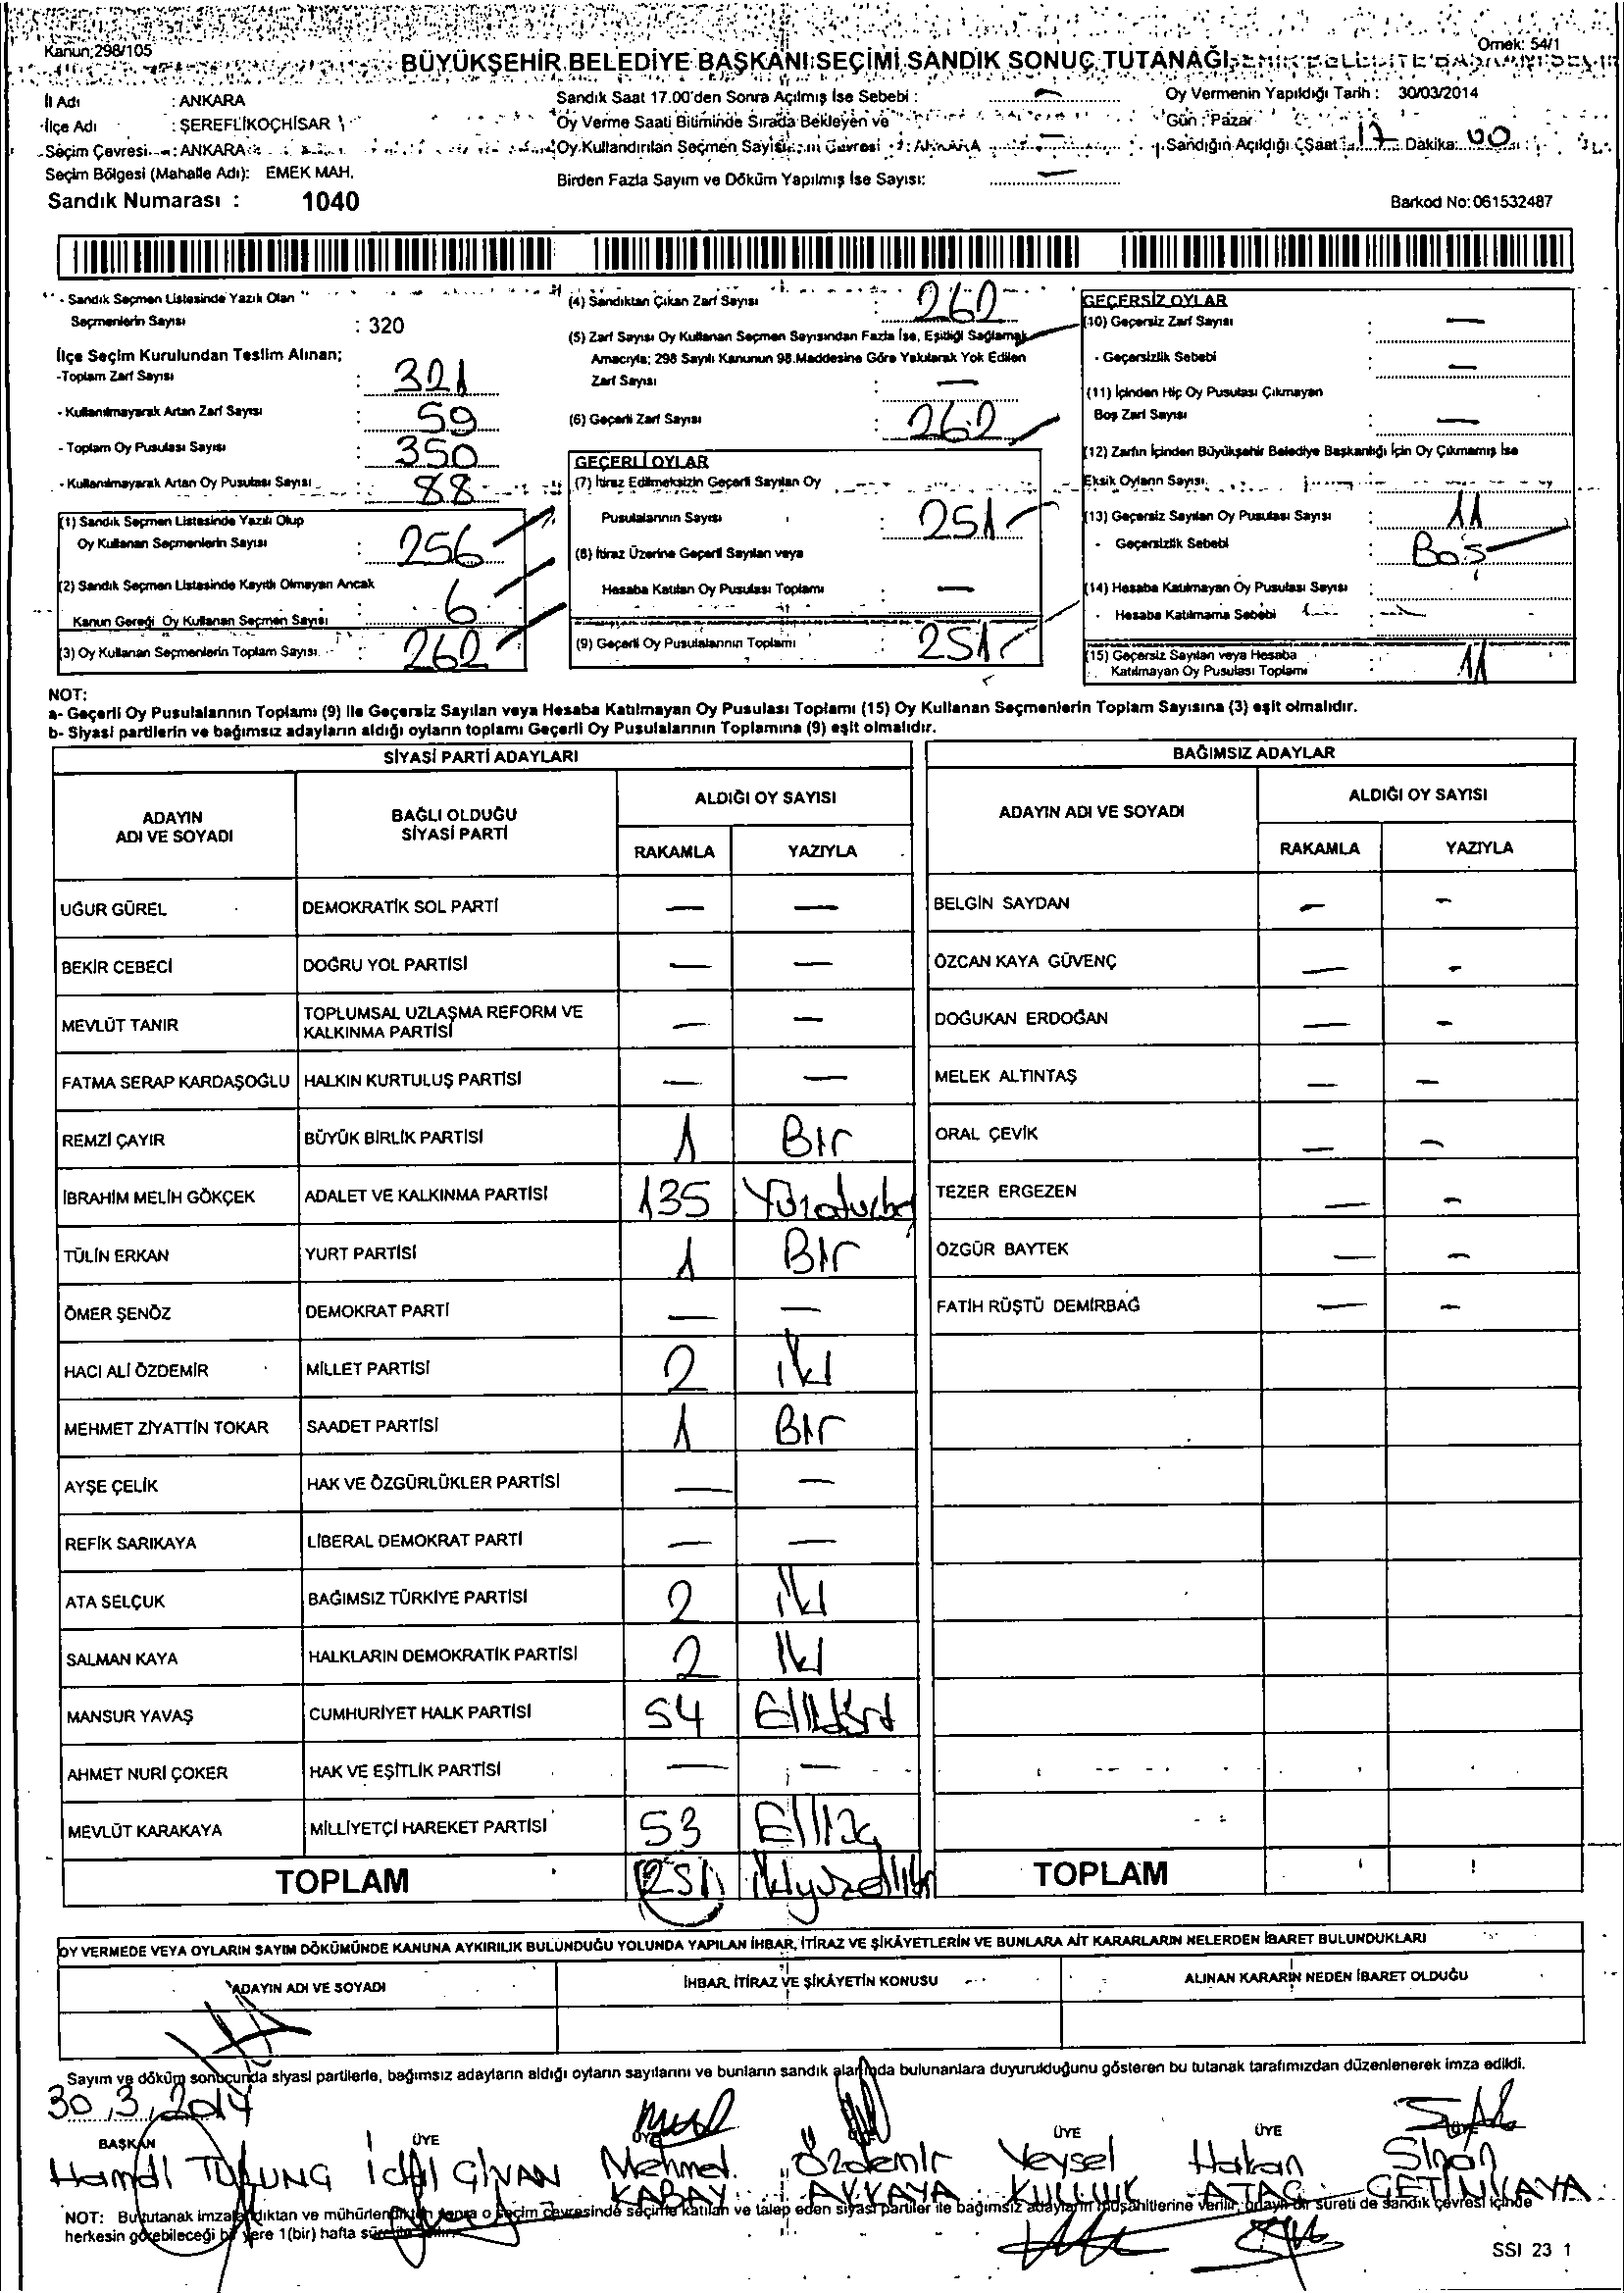 Kanun:298/105
Örnek: 54/1
BÜYÜKŞEHİR BELEDİYE BAŞKANI SEÇİMİ SANDIK SONUÇ TUTANAĞI
İl Adı : ANKARA
İlçe Adı : ŞEREFLİKOÇHİSAR
Seçim Çevresi : ANKARA
Seçim Bölgesi (Mahalle Adı): EMEK MAH.
Sandık Numarası : 1040
Sandık Saat 17.00'den Sonra Açılmış İse Sebebi : —
Oy Verme Saati Bitiminde Sırada Bekleyen ve
Oy Kullandırılan Seçmen Sayısı —
Birden Fazla Sayım ve Döküm Yapılmış İse Sayısı: —
Oy Vermenin Yapıldığı Tarih : 30/03/2014
Gün : Pazar
Sandığın Açıldığı Saat : 17 Dakika: 00
Barkod No: 061532487
- Sandık Seçmen Listesinde Yazılı Olan
Seçmenlerin Sayısı : 320
İlçe Seçim Kurulundan Teslim Alınan;
-Toplam Zarf Sayısı : 321
- Kullanılmayarak Artan Zarf Sayısı : 59
- Toplam Oy Pusulası Sayısı : 350
- Kullanılmayarak Artan Oy Pusulası Sayısı : 88
(1) Sandık Seçmen Listesinde Yazılı Olup
Oy Kullanan Seçmenlerin Sayısı : 256
(2) Sandık Seçmen Listesinde Kayıtlı Olmayan Ancak
Kanun Gereği Oy Kullanan Seçmen Sayısı : 6
(3) Oy Kullanan Seçmenlerin Toplam Sayısı : 262
(4) Sandıktan Çıkan Zarf Sayısı : 262
(5) Zarf Sayısı Oy Kullanan Seçmen Sayısından Fazla İse, Eşitliği Sağlamak
Amacıyla; 298 Sayılı Kanunun 98.Maddesine Göre Yakılarak Yok Edilen
Zarf Sayısı : —
(6) Geçerli Zarf Sayısı : 262
GEÇERLİ OYLAR
(7) İtiraz Edilmeksizin Geçerli Sayılan Oy
Pusulalarının Sayısı : 251
(8) İtiraz Üzerine Geçerli Sayılan veya
Hesaba Katılan Oy Pusulası Toplamı : —
(9) Geçerli Oy Pusulalarının Toplamı : 251
GEÇERSİZ OYLAR
(10) Geçersiz Zarf Sayısı : —
- Geçersizlik Sebebi : —
(11) İçinden Hiç Oy Pusulası Çıkmayan
Boş Zarf Sayısı : —
(12) Zarfın İçinden Büyükşehir Belediye Başkanlığı İçin Oy Çıkmamış İse
Eksik Oyların Sayısı
(13) Geçersiz Sayılan Oy Pusulası Sayısı : 11
- Geçersizlik Sebebi : Boş
(14) Hesaba Katılmayan Oy Pusulası Sayısı :
- Hesaba Katılmama Sebebi
(15) Geçersiz Sayılan veya Hesaba
Katılmayan Oy Pusulası Toplamı : 11
NOT:
a- Geçerli Oy Pusulalarının Toplamı (9) İle Geçersiz Sayılan veya Hesaba Katılmayan Oy Pusulası Toplamı (15) Oy Kullanan Seçmenlerin Toplam Sayısına (3) eşit olmalıdır.
b- Siyasi partilerin ve bağımsız adayların aldığı oyların toplamı Geçerli Oy Pusulalarının Toplamına (9) eşit olmalıdır.
SİYASİ PARTİ ADAYLARI
ADAYIN ADI VE SOYADI
BAĞLI OLDUĞU SİYASİ PARTİ
ALDIĞI OY SAYISI
RAKAMLA YAZIYLA
UĞUR GÜREL DEMOKRATİK SOL PARTİ — —
BEKİR CEBECİ DOĞRU YOL PARTİSİ — —
MEVLÜT TANIR TOPLUMSAL UZLAŞMA REFORM VE KALKINMA PARTİSİ — —
FATMA SERAP KARDAŞOĞLU HALKIN KURTULUŞ PARTİSİ — —
REMZİ ÇAYIR BÜYÜK BİRLİK PARTİSİ 1 Bir
İBRAHİM MELİH GÖKÇEK ADALET VE KALKINMA PARTİSİ 135
TÜLİN ERKAN YURT PARTİSİ 1 Bir
ÖMER ŞENÖZ DEMOKRAT PARTİ — —
HACI ALİ ÖZDEMİR MİLLET PARTİSİ 2 İki
MEHMET ZİYATTİN TOKAR SAADET PARTİSİ 1 Bir
AYŞE ÇELİK HAK VE ÖZGÜRLÜKLER PARTİSİ — —
REFİK SARIKAYA LİBERAL DEMOKRAT PARTİ — —
ATA SELÇUK BAĞIMSIZ TÜRKİYE PARTİSİ 2 İki
SALMAN KAYA HALKLARIN DEMOKRATİK PARTİSİ 2 İki
MANSUR YAVAŞ CUMHURİYET HALK PARTİSİ 54 Ellidört
AHMET NURİ ÇOKER HAK VE EŞİTLİK PARTİSİ — —
MEVLÜT KARAKAYA MİLLİYETÇİ HAREKET PARTİSİ 53 Elliüç
TOPLAM 251 İkiyüzellibir
BAĞIMSIZ ADAYLAR
ADAYIN ADI VE SOYADI
ALDIĞI OY SAYISI
RAKAMLA YAZIYLA
BELGİN SAYDAN — —
ÖZCAN KAYA GÜVENÇ — —
DOĞUKAN ERDOĞAN — —
MELEK ALTINTAŞ — —
ORAL ÇEVİK — —
TEZER ERGEZEN — —
ÖZGÜR BAYTEK — —
FATİH RÜŞTÜ DEMİRBAĞ — —
TOPLAM
OY VERMEDE VEYA OYLARIN SAYIM DÖKÜMÜNDE KANUNA AYKIRILIK BULUNDUĞU YOLUNDA YAPILAN İHBAR, İTİRAZ VE ŞİKÂYETLERİN VE BUNLARA AİT KARARLARIN NELERDEN İBARET BULUNDUKLARI
ADAYIN ADI VE SOYADI İHBAR, İTİRAZ VE ŞİKÂYETİN KONUSU ALINAN KARARIN NEDEN İBARET OLDUĞU
Sayım ve döküm sonucunda siyasi partilerle, bağımsız adayların aldığı oyların sayılarını ve bunların sandık alanında bulunanlara duyurulduğunu gösteren bu tutanak tarafımızdan düzenlenerek imza edildi.
30.3.2014
BAŞKAN ÜYE ÜYE ÜYE ÜYE
Hamdi TOSUNG Mehmet Özdemir Veysel Hakan Sinan
KABAY AVKAYA KULLUK ATAÇ ÇETİNKAYA
NOT: Bu tutanak imzalandıktan ve mühürlendikten sonra o seçim çevresinde seçime katılan ve talep eden siyasi partiler ile bağımsız adayların müşahitlerine verilir, onaylı bir sureti de sandık çevresi içinde
herkesin görebileceği bir yere 1(bir) hafta süre ile asılır.
SSI 23 1